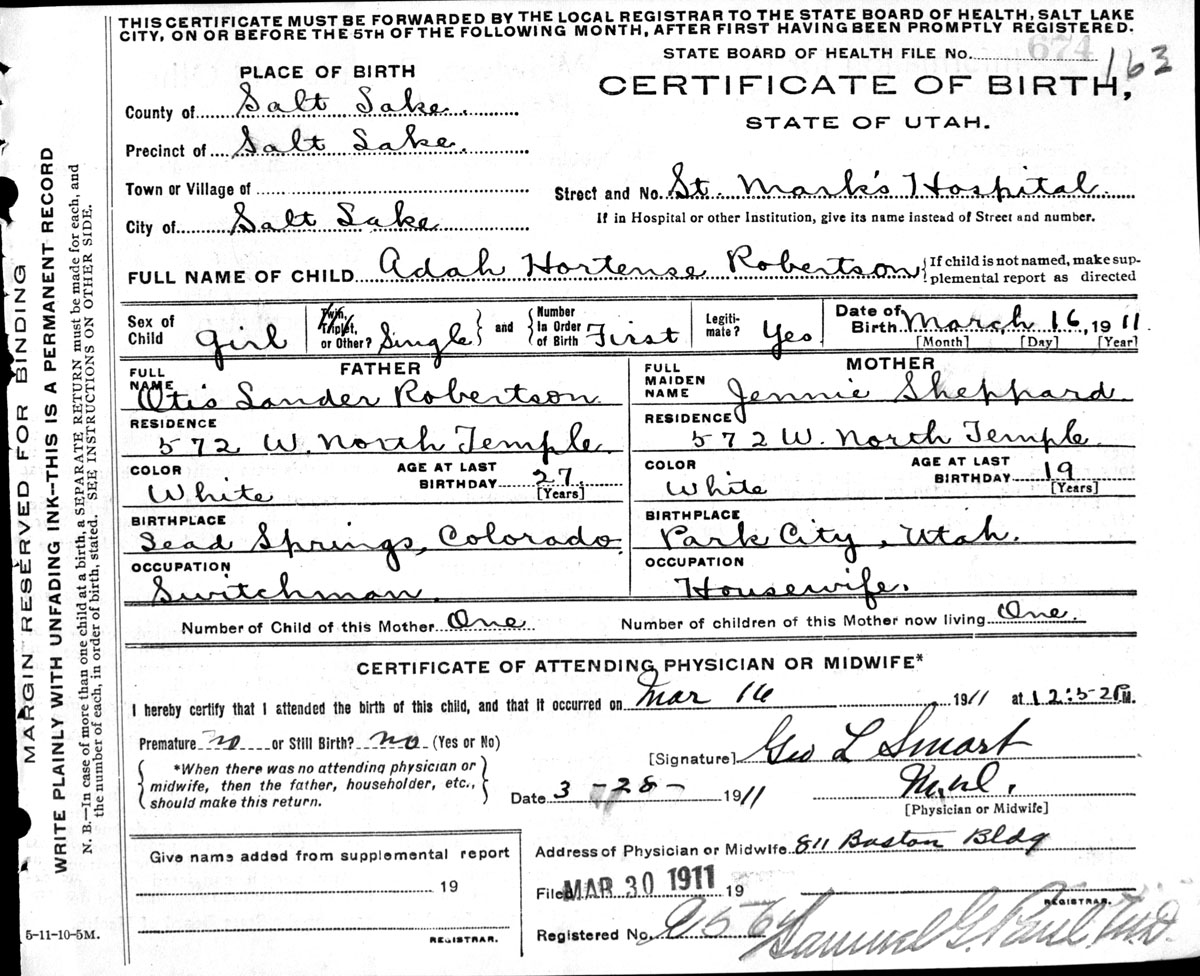 THIS CERTIFICATE MUST BE FORWARDED BY THE LOCAL REGISTRAR TO THE STATE BOARD OF HEALTH, SALT LAKE
CITY, ON OR BEFORE THE 5TH OF THE FOLLOWING MONTH, AFTER FIRST HAVING BEEN PROMPTLY REGISTERED.
STATE BOARD OF HEALTH FILE No. 674 163
PLACE OF BIRTH
CERTIFICATE OF BIRTH,
STATE OF UTAH.
County of Salt Lake
Precinct of Salt Lake.
Town or Village of
Street and No. St. Mark's Hospital
City of Salt Lake
If in Hospital or other Institution, give its name instead of Street and number.
FULL NAME OF CHILD Adah Hortense Robertson {If child is not named, make sup-
plemental report as directed
Sex of Child Girl Twin, Triplet, or Other? Single } and { Number In Order of Birth First Legiti-mate? Yes Date of Birth March 16, 1911.
[Month] [Day] [Year]
FATHER
FULL NAME Otis Lander Robertson
RESIDENCE
572 W. North Temple.
COLOR White AGE AT LAST BIRTHDAY 27.
[Years]
BIRTHPLACE
Lead Springs, Colorado.
OCCUPATION
Switchman.
MOTHER
FULL MAIDEN NAME Jennie Sheppard
RESIDENCE
572 W. North Temple.
COLOR White AGE AT LAST BIRTHDAY 19
[Years]
BIRTHPLACE
Park City, Utah.
OCCUPATION
Housewife.
Number of Child of this Mother One Number of children of this Mother now living One.
CERTIFICATE OF ATTENDING PHYSICIAN OR MIDWIFE*
I hereby certify that I attended the birth of this child, and that it occurred on Mar 16 1911 at 12:52 P.M.
Premature no or Still Birth? no (Yes or No)
[Signature] Geo L Smart
{ *When there was no attending physician or
midwife, then the father, householder, etc.,
should make this return. }
Date 3-28- 1911
M.D.
[Physician or Midwife]
Give name added from supplemental report
19
REGISTRAR.
Address of Physician or Midwife 811 Boston Bldg
Filed MAR 30 1911 19
REGISTRAR.
Registered No. Samuel G. Paul, M.D.
5-11-10-5M.
MARGIN RESERVED FOR BINDING
WRITE PLAINLY WITH UNFADING INK--THIS IS A PERMANENT RECORD
N. B.—In case of more than one child at a birth, a SEPARATE RETURN must be made for each, and
the number of each, in order of birth, stated. SEE INSTRUCTIONS ON OTHER SIDE.